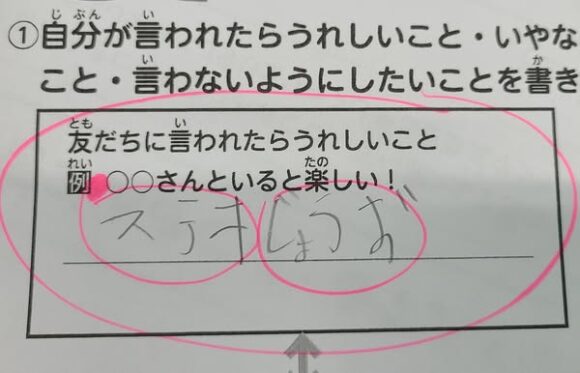 ①自分が言われたらうれしいこと・いやな
こと・言わないようにしたいことを書き
友だちに言われたらうれしいこと
例 〇〇さんといると楽しい！
ステキ じょうず